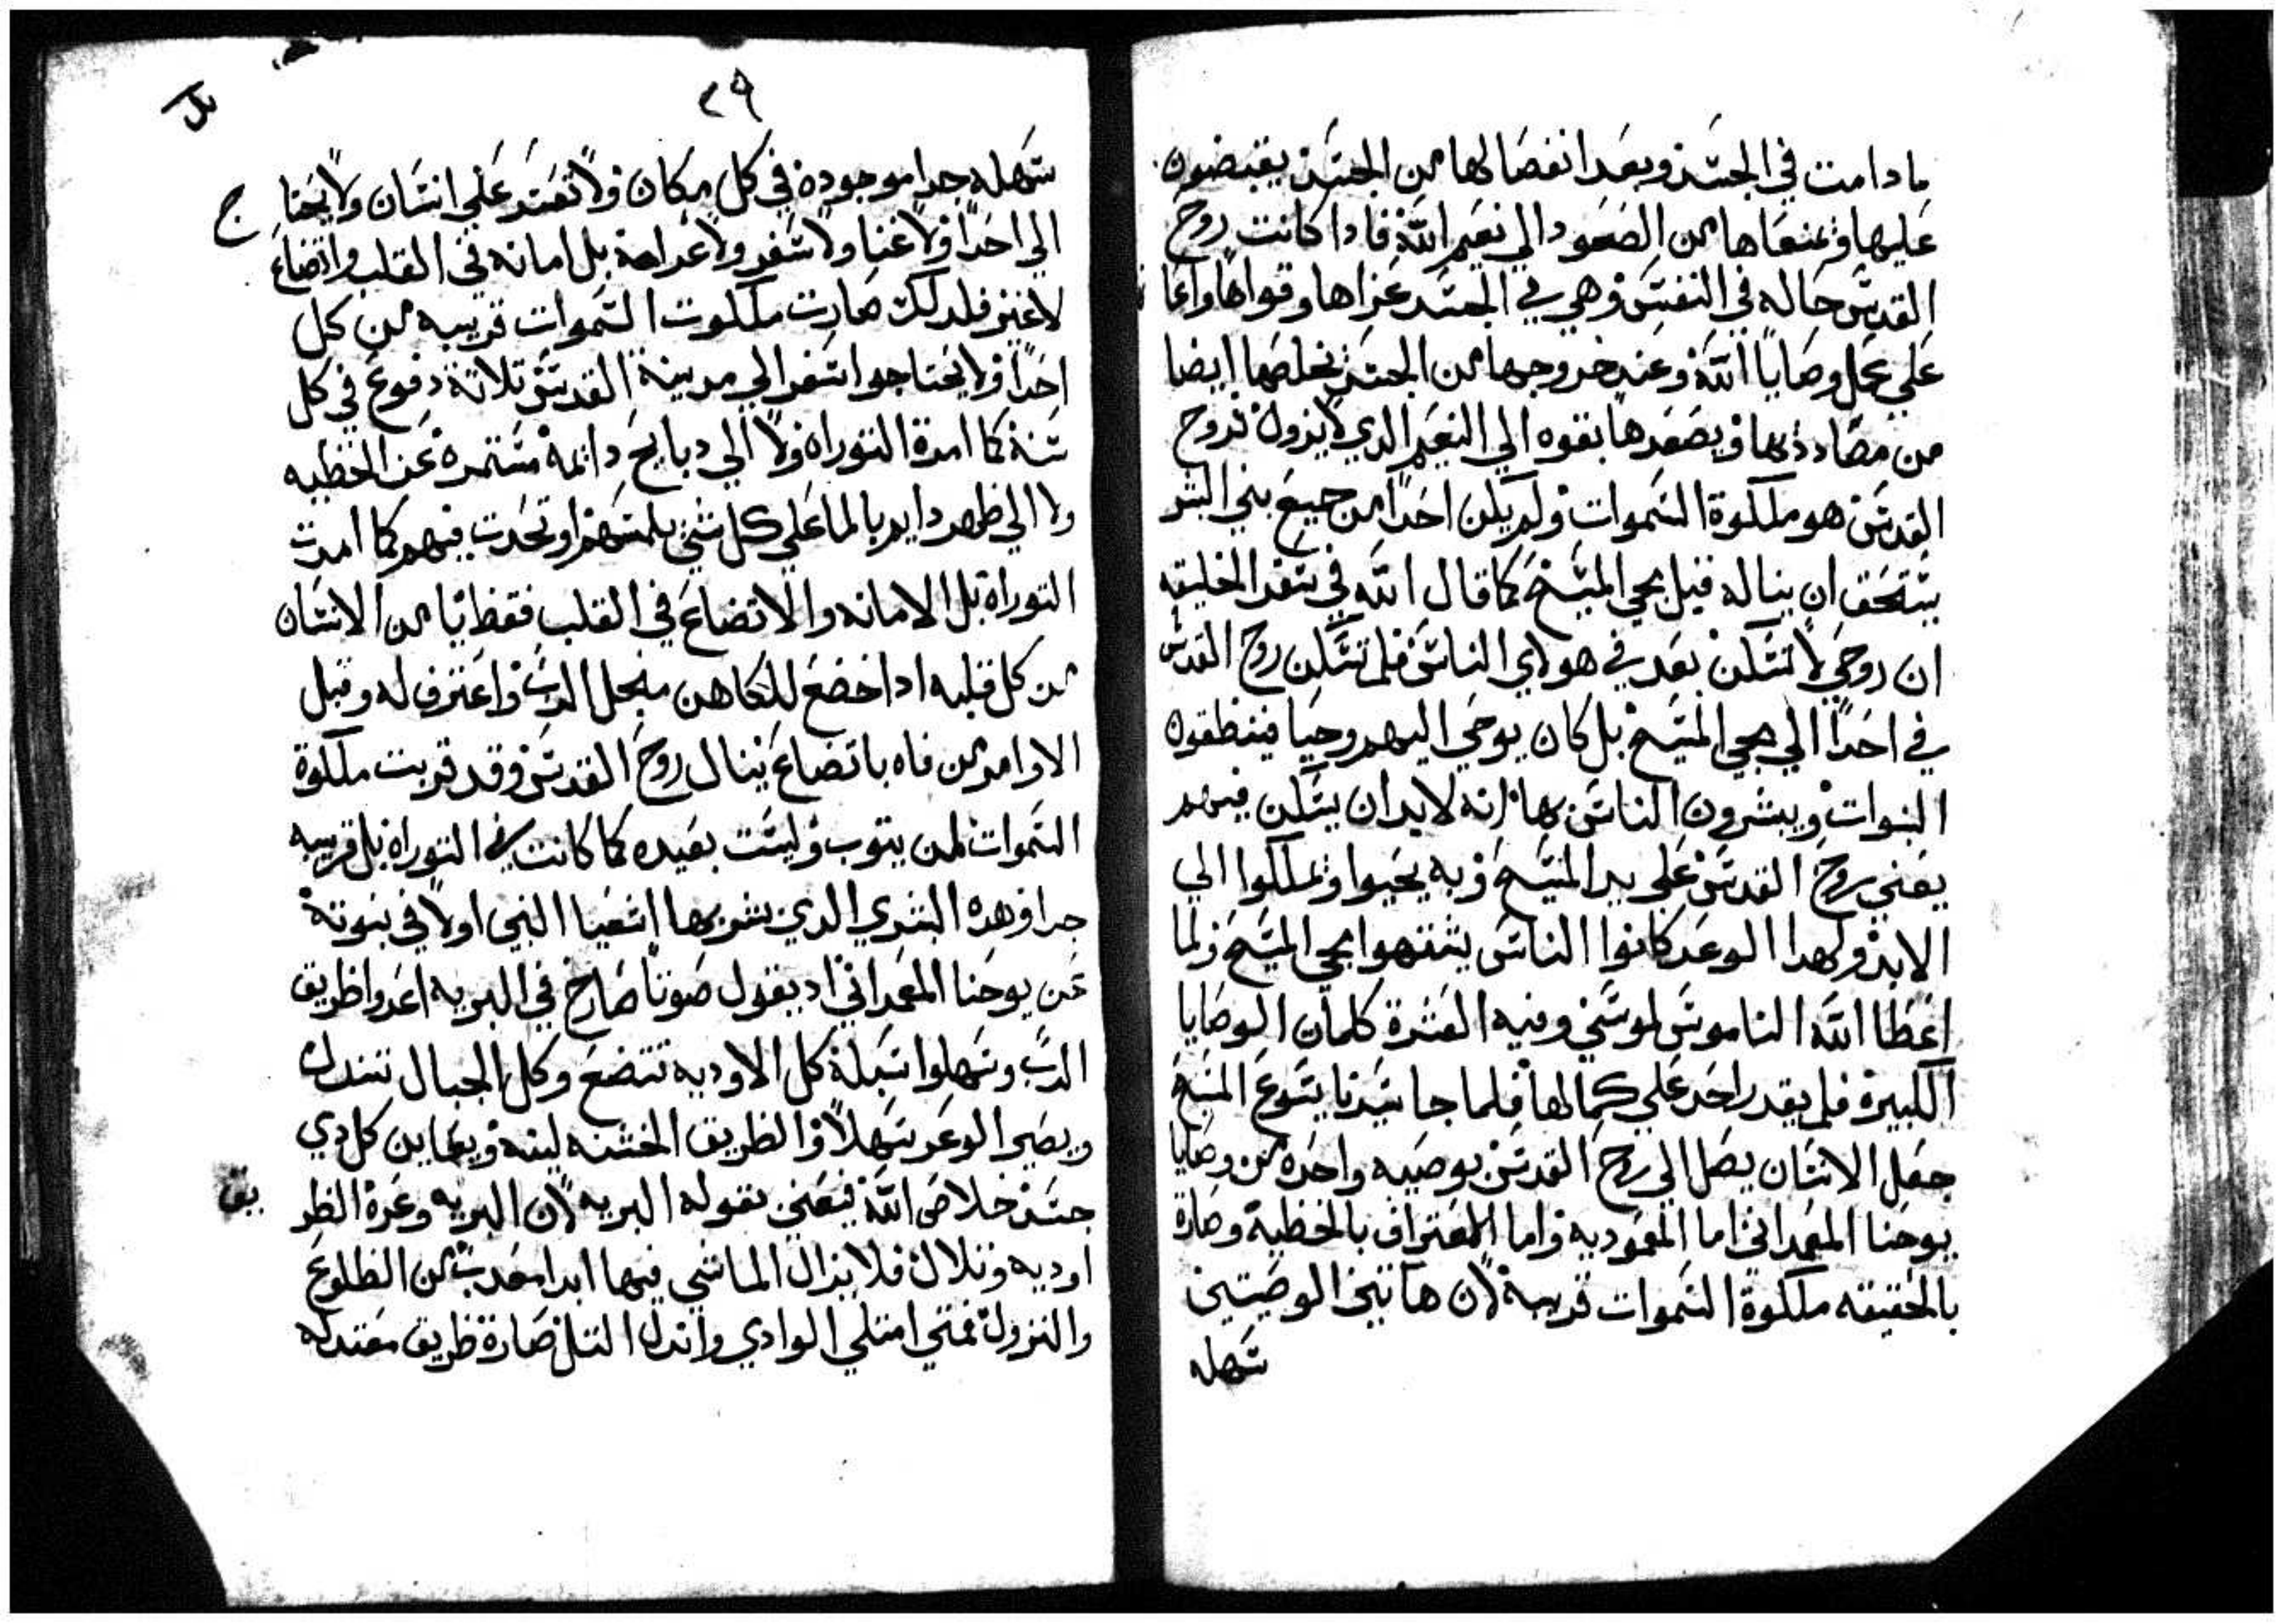 ما دامت في الجسد وبعد انفصالها من الجسد يقبضون
عليها ويمنعاها من الصعود الي نعيم الله فادا كانت روح
القدس حاله في النفس وهي في الجسد عزاها وقواها واعا
علي عمل وصايا الله وعند خروجها من الجسد تخلصها ايضا
من مضاددىها ويصعدها بقوه الي النعيم الدي لا يزول فروح
القدس هو ملكوة السموات ولم يكن احدا من جميع بني البشر
يستحق ان يناله قبل مجي المسيح كما قال الله في سفر الخليقه
ان روحي لا تسكن بعد في هولاي الناس فلم تسكن روح القدس
في احدا الي مجي المسيح بل كان يوحي اليهم وحيا فينطقوه
النبوات ويبشرون الناس بها انه لابد ان يسكن فيهم
يعني روح القدس علي يد المسيح وبه يحيوا ويملكوا الي
الابد ولهدا الوعد كانوا الناس يشتهوا مجي المسيح ولما
اعطا الله الناموس لموسي وفيه العشرة كلمات الوصايا
الكبيرة فلم يقدر احد علي كمالها فلما جا سيدنا يسوع المسيح
جعل الانسان يصل الي روح القدس بوصيه واحده من وصايا
يوحنا المعمداني اما المعموديه واما الاعتراف بالخطية وصارة
بالحقيقه ملكوة السموات قريبة لان هاتين الوصيتين
سهله
٢٩
سهله جدا موجوده في كل مكان ولا تعسر علي انسان ولا يحتاج
الي احدا ولا غنا ولا سفر ولا غرامة بل امانه في القلب واتضاع
لا غير فلدلك صارت ملكوت السموات قريبه من كل
احدا ولا يحتاجوا سفر الي مدينة القدس تلاتة دفوع في كل
سنة كما امرة التوراه ولا الي دبايح دايمة مستمرة عن الخطيه
ولا الي طهر دايم بالما علي كل شي يلمسهم او تحدت فيهم كما امرت
التوراة بل الامانه والاتضاع في القلب فقط يا من الانسان
من كل قلبه ادا خضع للكاهن من اجل الرب واعترف له وقبل
الاوامر من فاه باتضاع ينال روح القدس وقد قربت ملكوة
السموات لمن يتوب وليست بعيده كما كانت في التوراه بل قريبه
جدا وهده البشري الدي بشر بها اشعيا النبي اولا في نبوتة
عن يوحنا المعمداني اد يقول صوتا صارخ في البريه اعدوا طريق
الرب وسهلوا سبلة كل الاوديه تتضع وكل الجبال تندك
ويصير الوعر سهلا والطريق الخشنه لينه ويعاين كل دي
جسد خلاص الله فيعني بقوله البريه لان البريه وعرة الطريق
اوديه وتلال فلا يزال الماشي فيها ابدا معدب من الطلوع
والنزول فمتي امتلي الوادي واندك التل صارة طريق معتدله